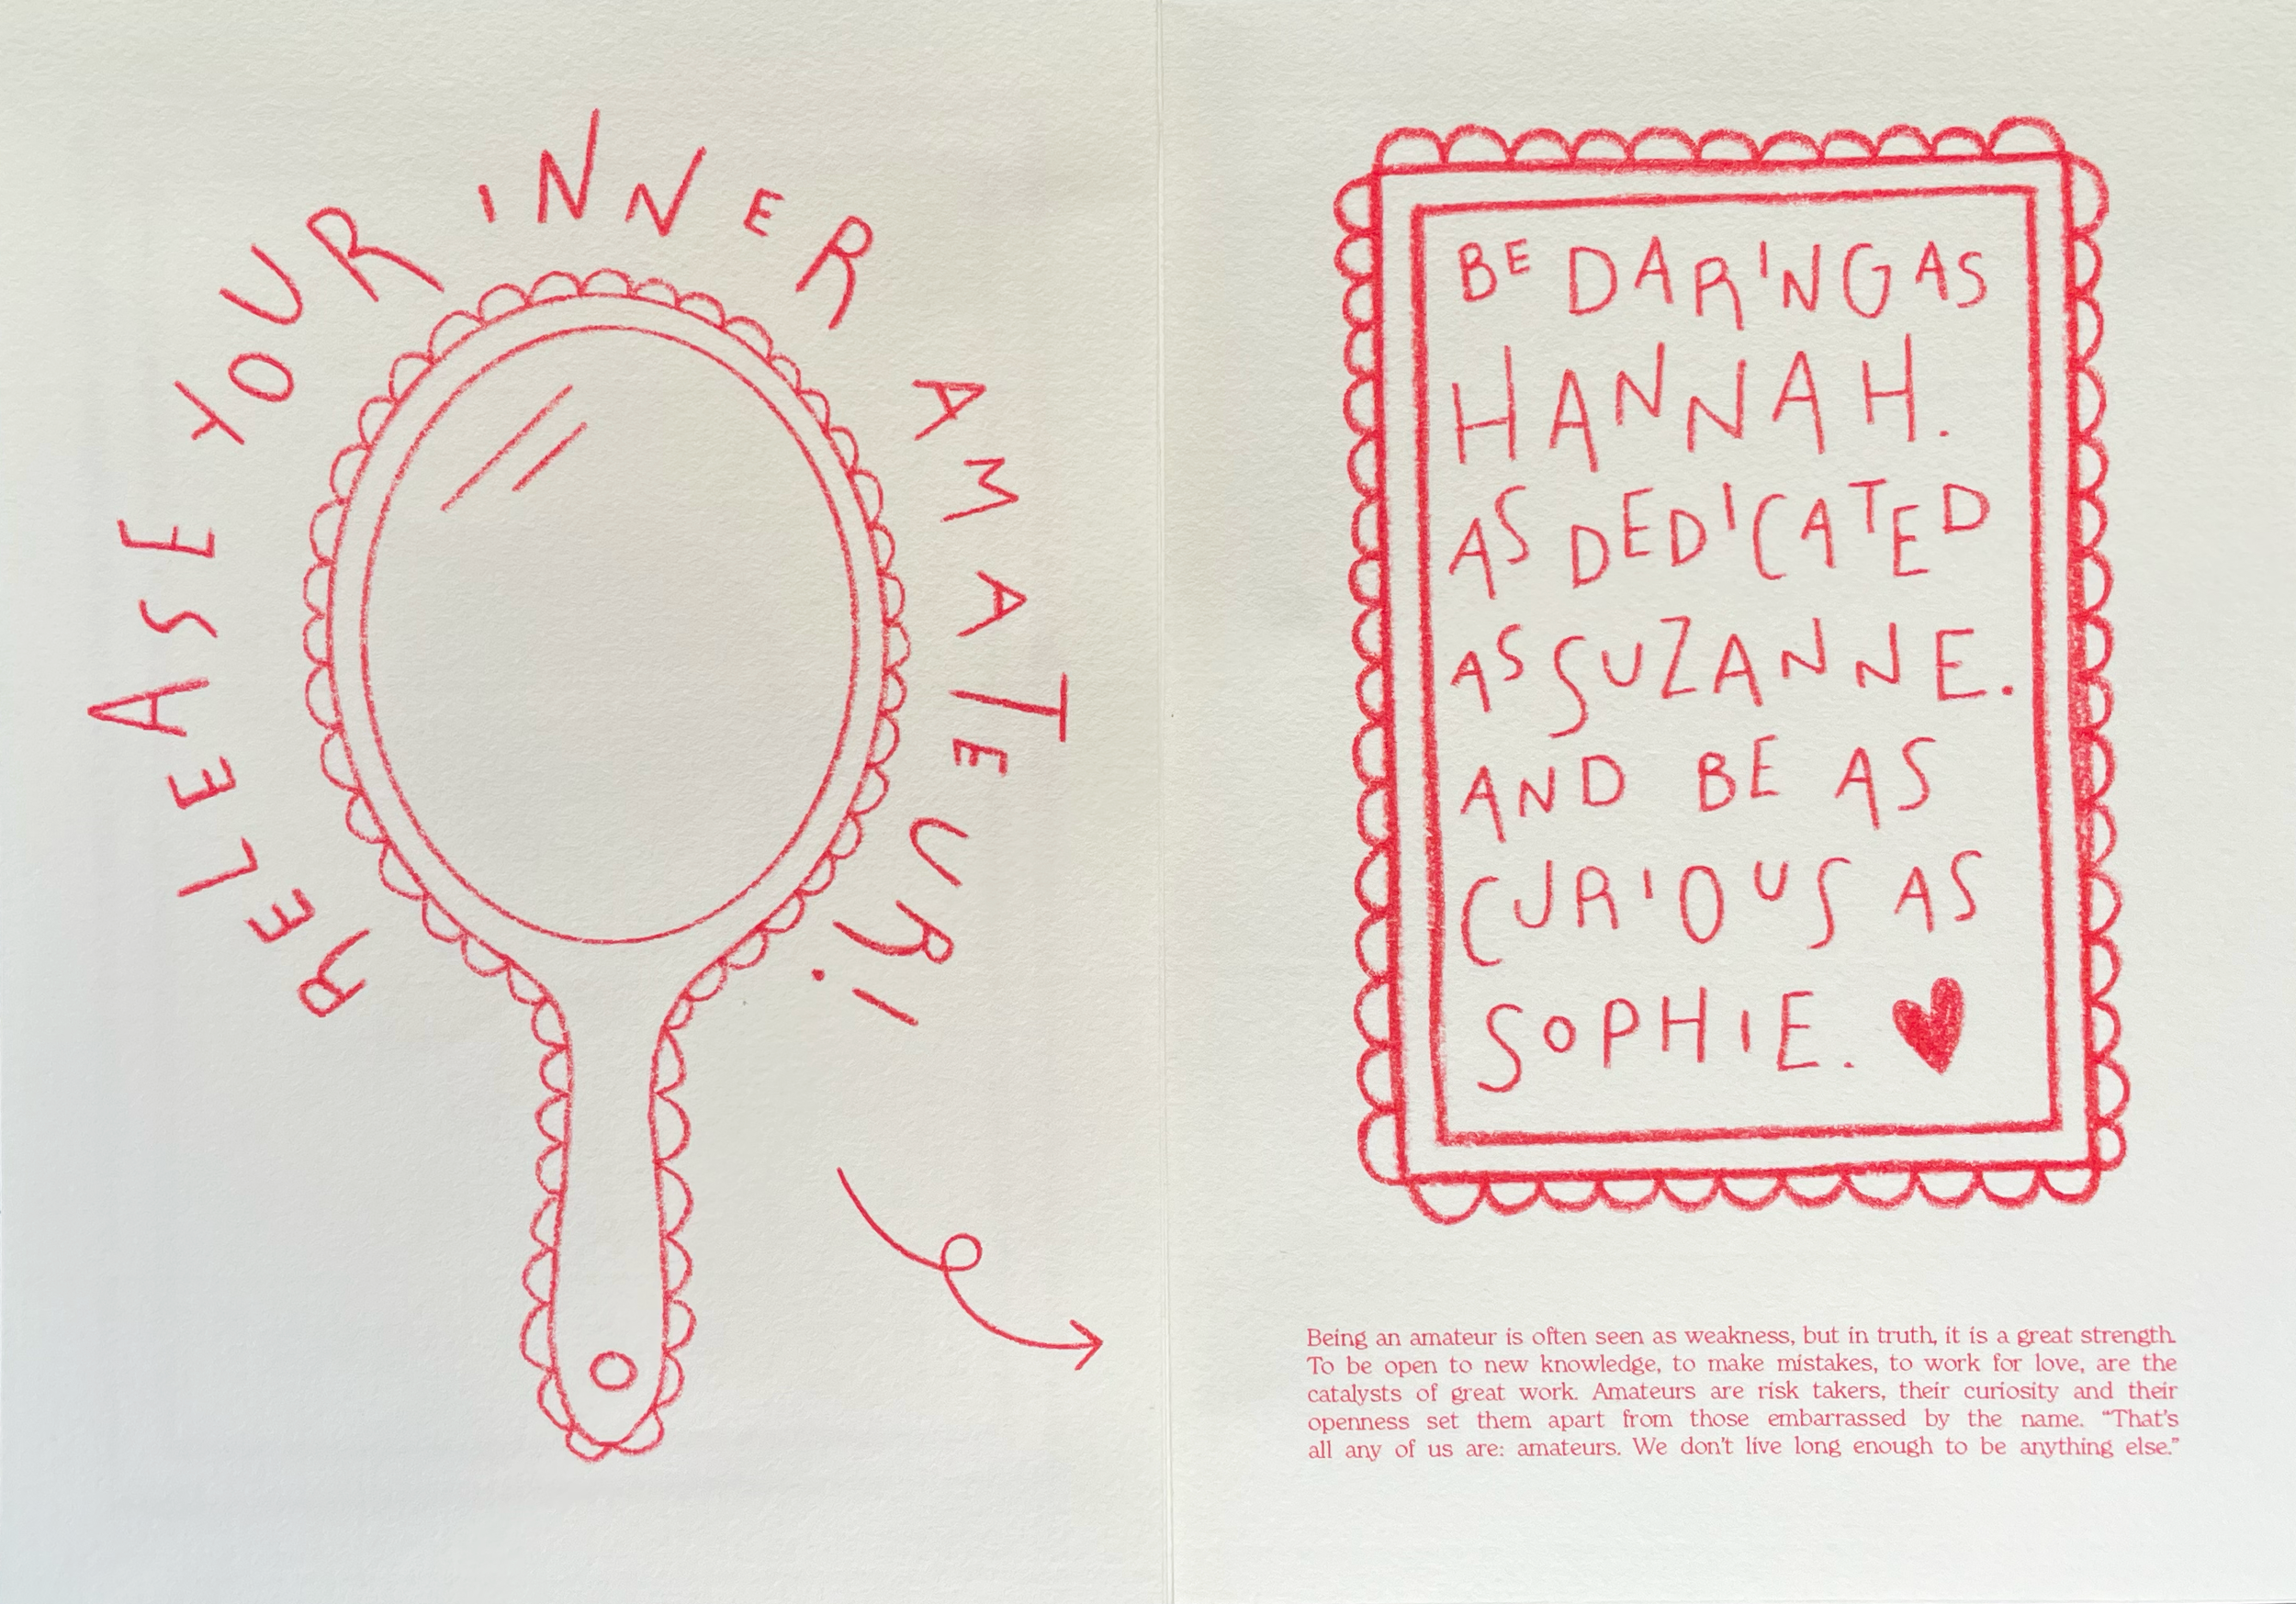 RELEASE YOUR INNER AMATEUR!
BE DARING AS
HANNAH.
AS DEDICATED
AS SUZANNE.
AND BE AS
CURIOUS AS
SOPHIE.
Being an amateur is often seen as weakness, but in truth, it is a great strength.
To be open to new knowledge, to make mistakes, to work for love, are the
catalysts of great work. Amateurs are risk takers, their curiosity and their
openness set them apart from those embarrassed by the name. “That’s
all any of us are: amateurs. We don’t live long enough to be anything else.”